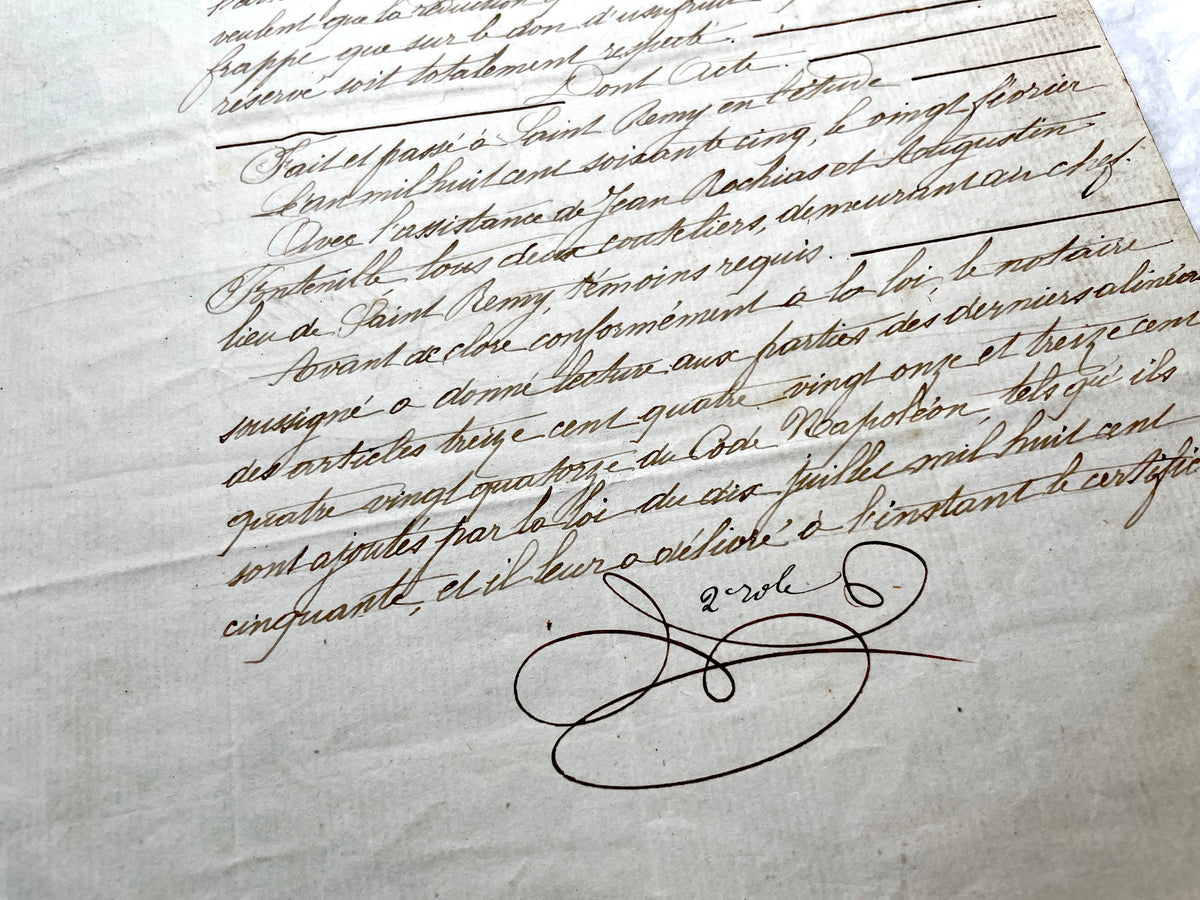 veulent que la réduction
frappe que sur le don d'usufruit
réservé soit totalement respecté.
Dont Acte.
Fait et passé à Saint Remy en l'étude
L'an mil huit cent soixante cinq, le vingt février
Avec l'assistance de Jean Rochias et Augustin
Fontenille tous deux couteliers, demeurant au chef.
lieu de Saint Remy, témoins requis.
Avant de clore conformément à la loi, le notaire
soussigné a donné lecture aux parties des derniers alinéas
des articles treize cent quatre vingt onze et treize cent
quatre vingt quatorze du Code Napoléon, tels qu'ils
sont ajoutés par la loi du dix juillet mil huit cent
cinquante, et il leur a délivré à l'instant le certificat
2e role